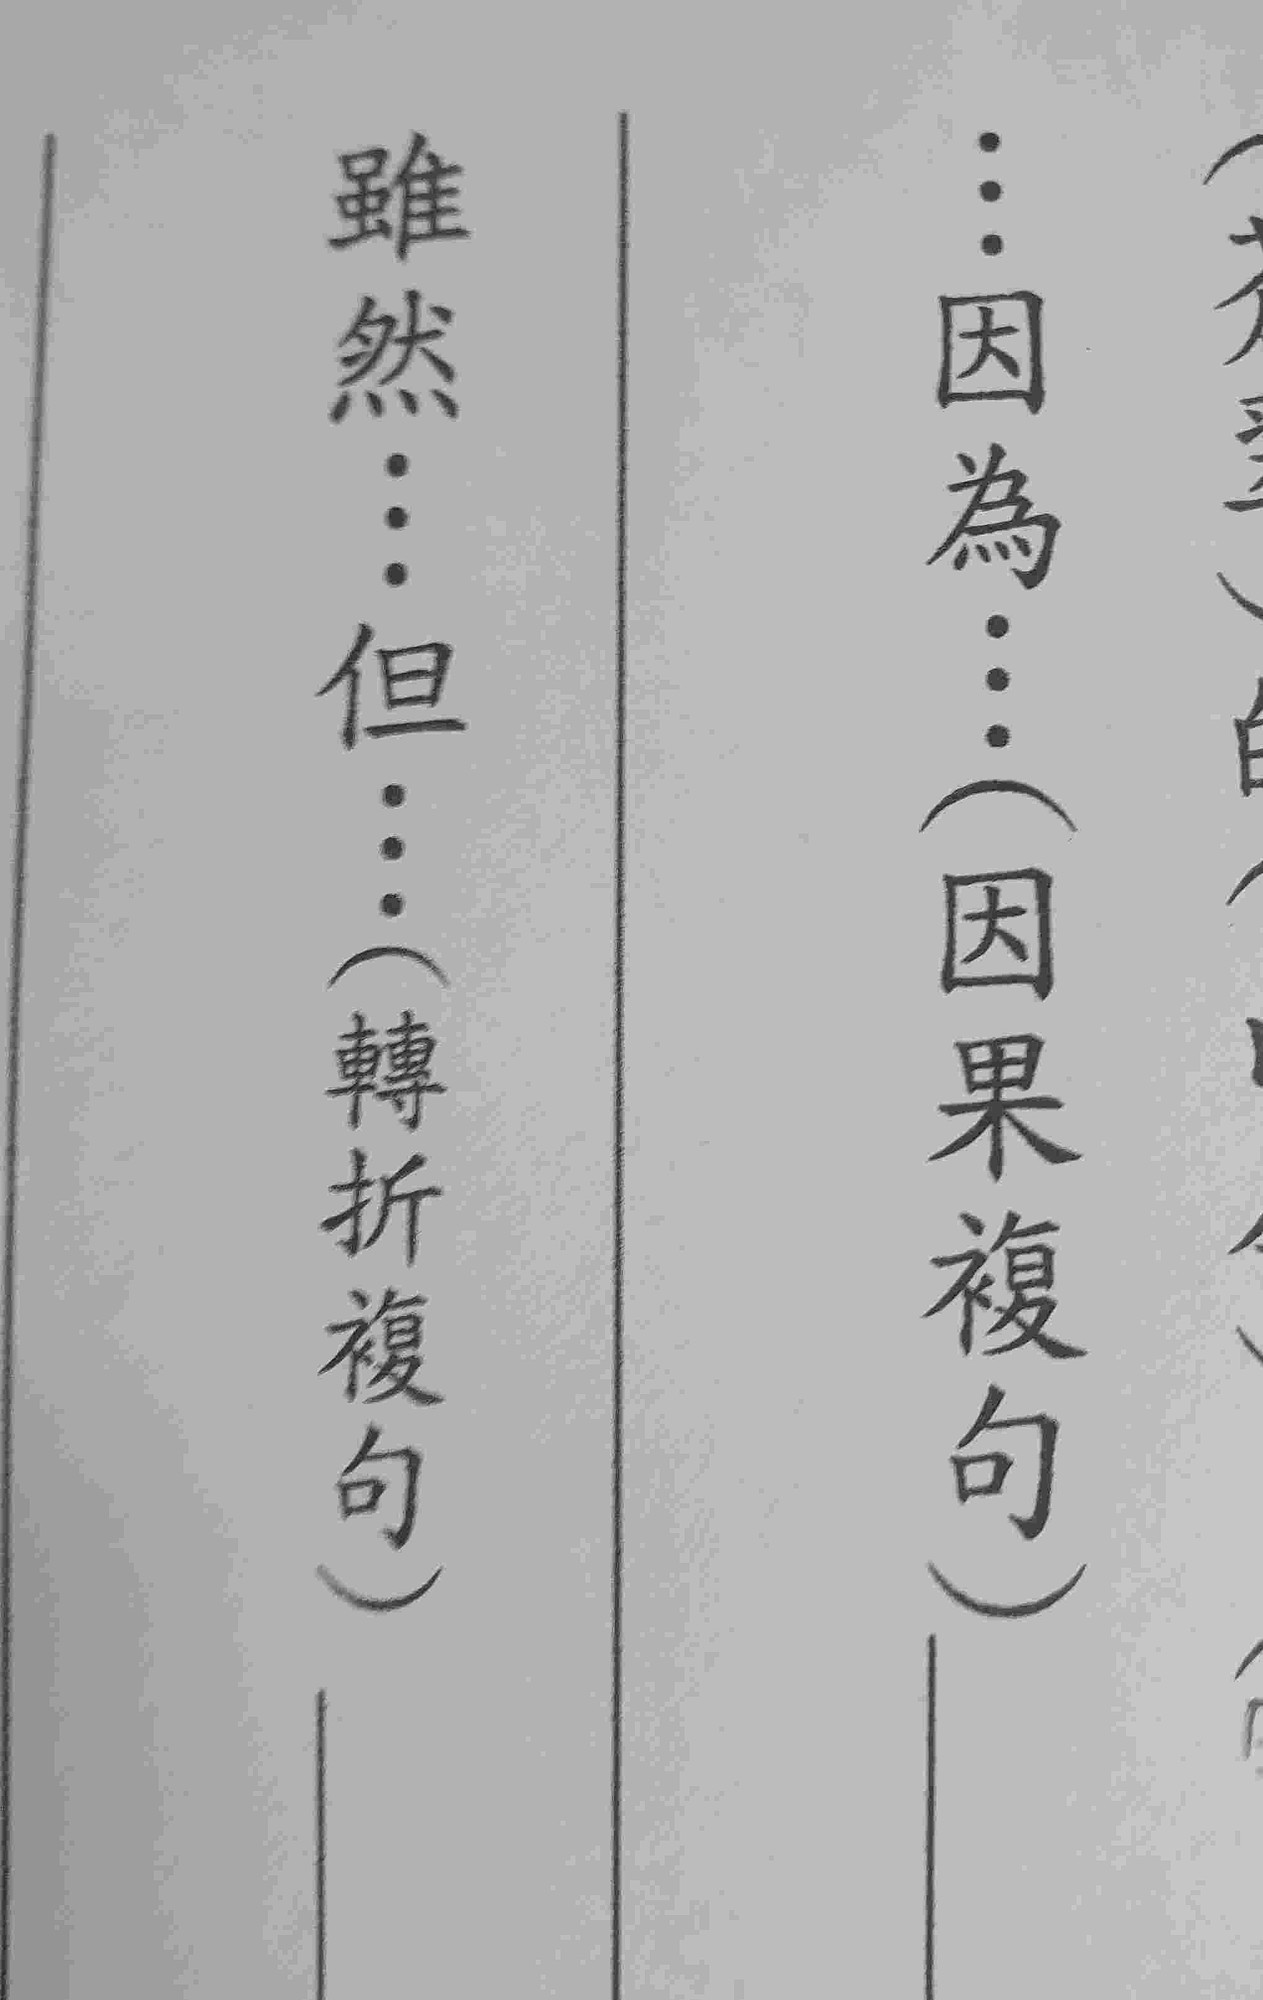 …因為…(因果複句)
雖然…但…(轉折複句)